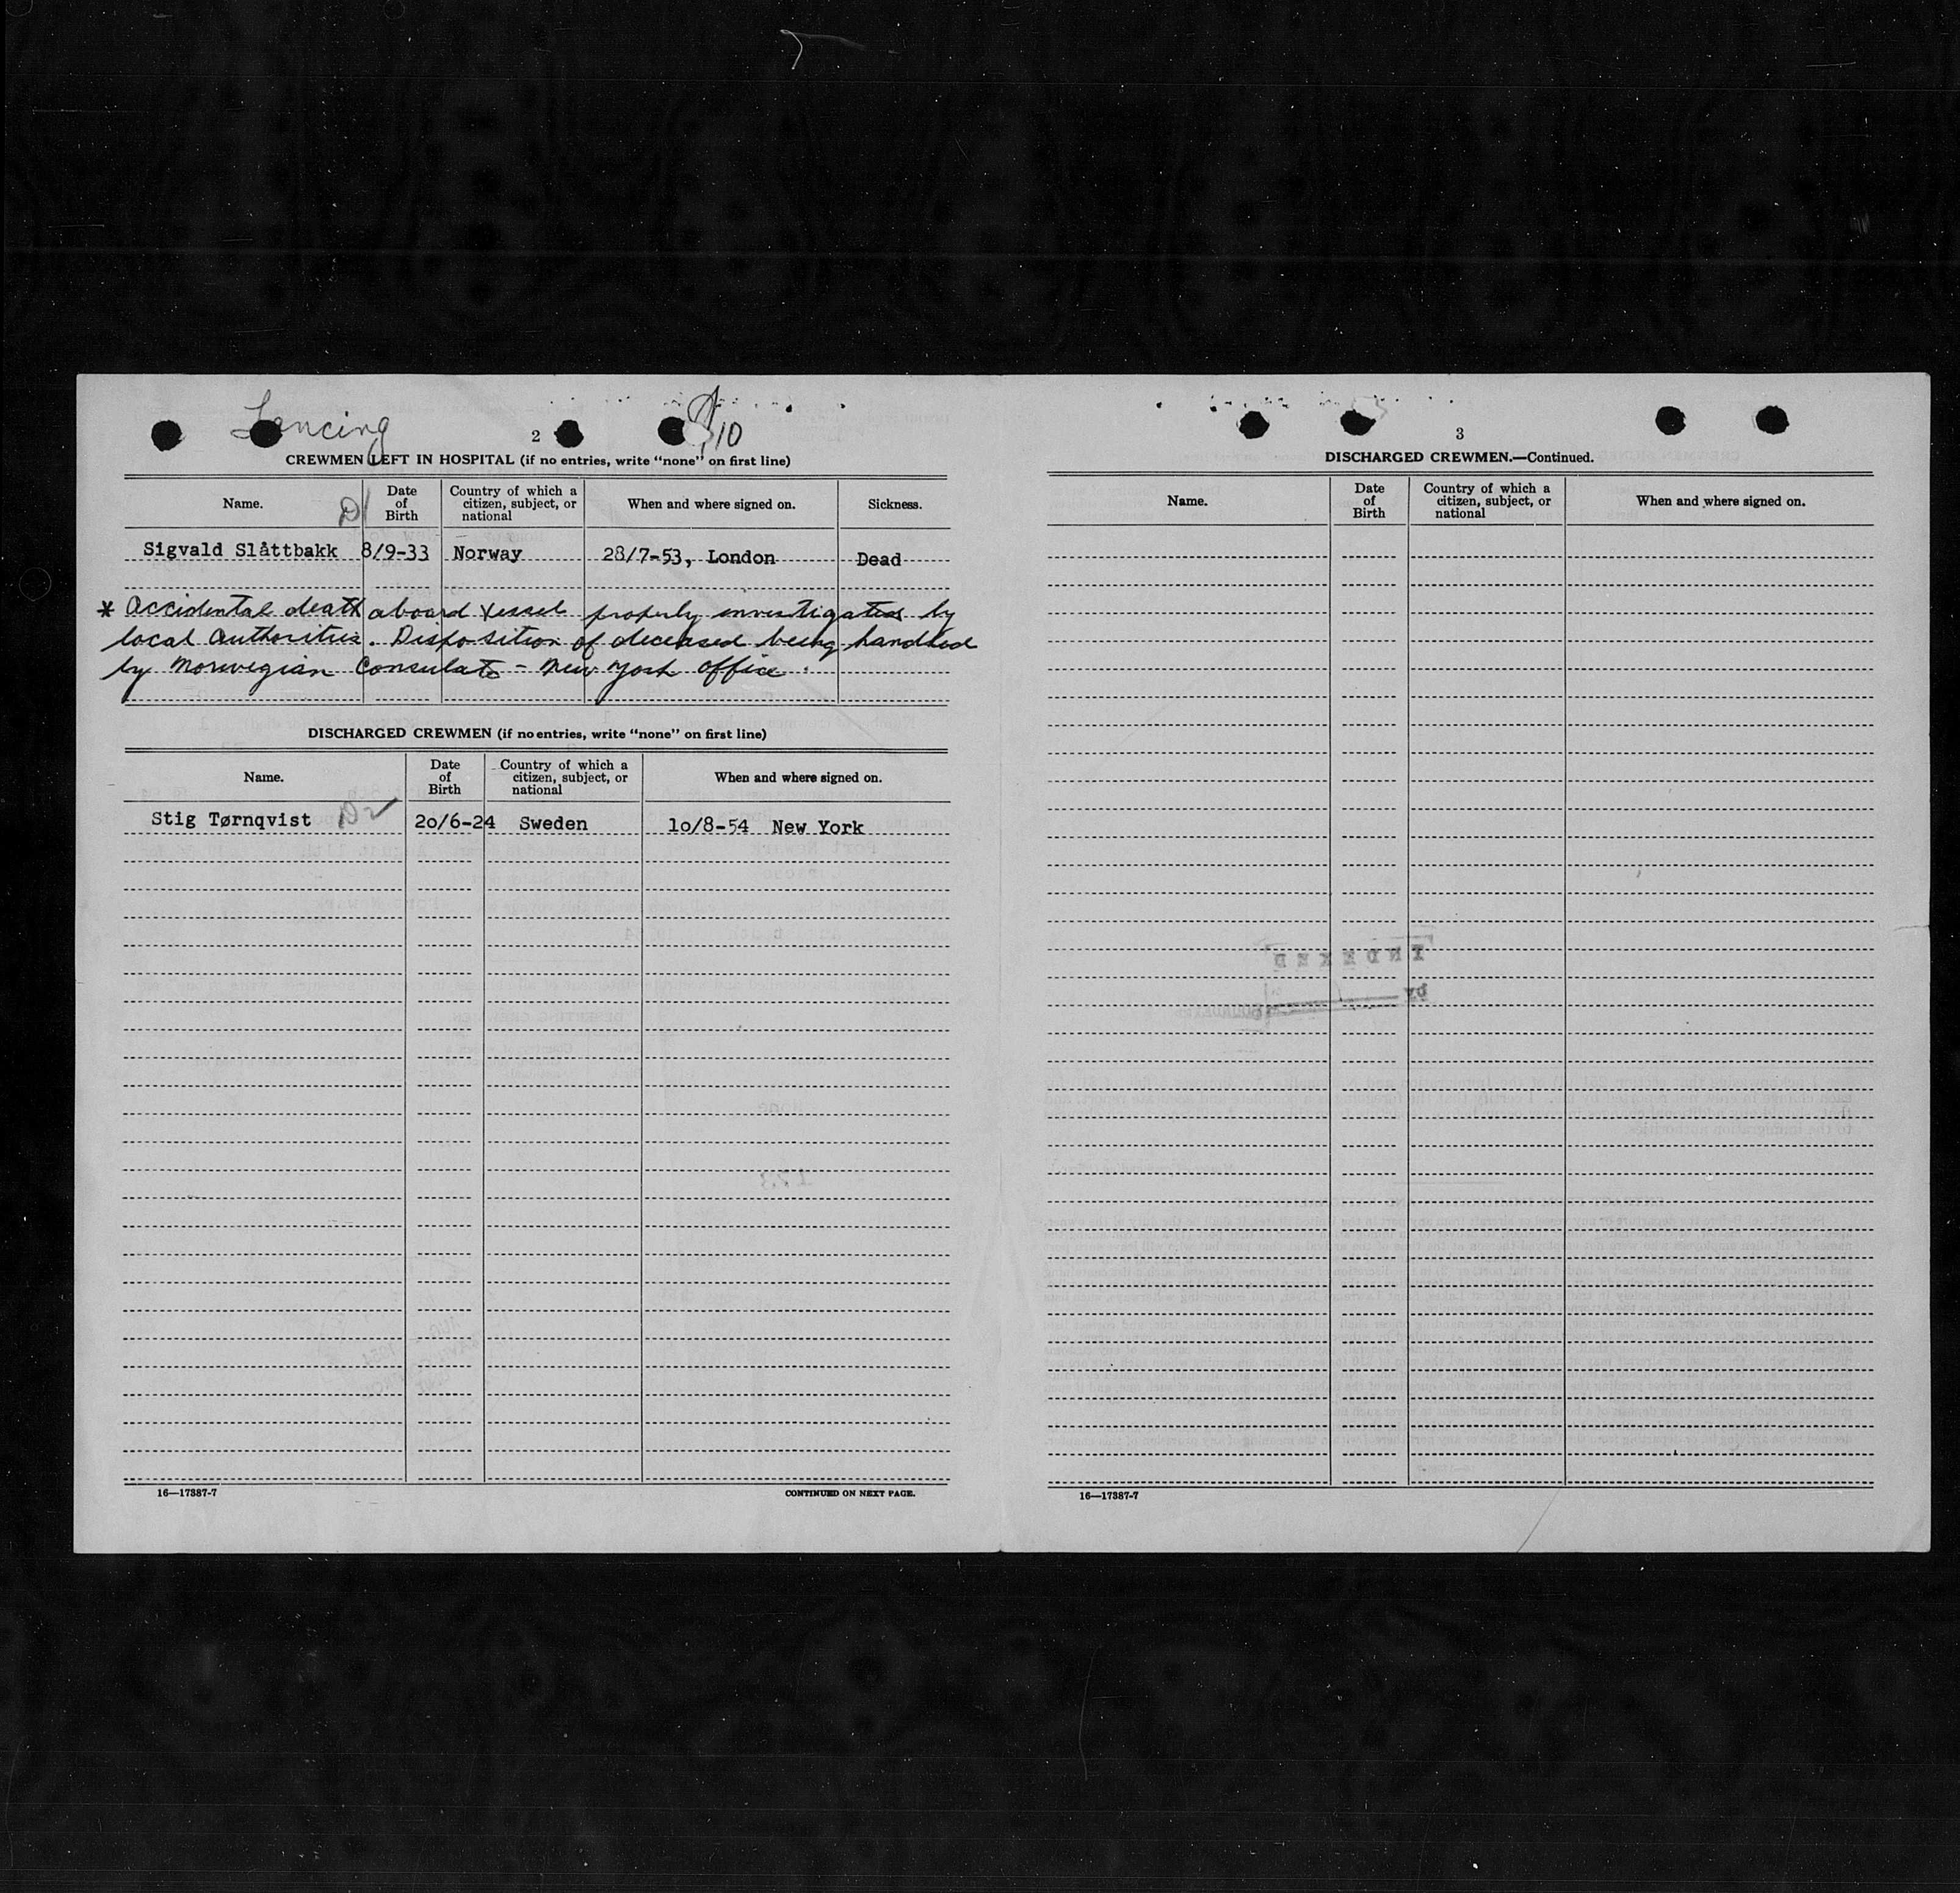 Lancing
2
10
CREWMEN LEFT IN HOSPITAL (if no entries, write “none” on first line)
Name. D1 Date of Birth Country of which a citizen, subject, or national When and where signed on. Sickness.
Sigvald Slåttbakk 8/9-33 Norway 28/7-53, London Dead
* Accidental death aboard vessel properly investigated by
local authorities. Disposition of deceased being handled
by Norwegian Consulate - New York Office.
DISCHARGED CREWMEN (if no entries, write “none” on first line)
Name. Date of Birth Country of which a citizen, subject, or national When and where signed on.
Stig Tørnqvist D2 20/6-24 Sweden 10/8-54 New York
16—17387-7 CONTINUED ON NEXT PAGE.
3
DISCHARGED CREWMEN.—Continued.
Name. Date of Birth Country of which a citizen, subject, or national When and where signed on.
INDEXED
by
16—17387-7